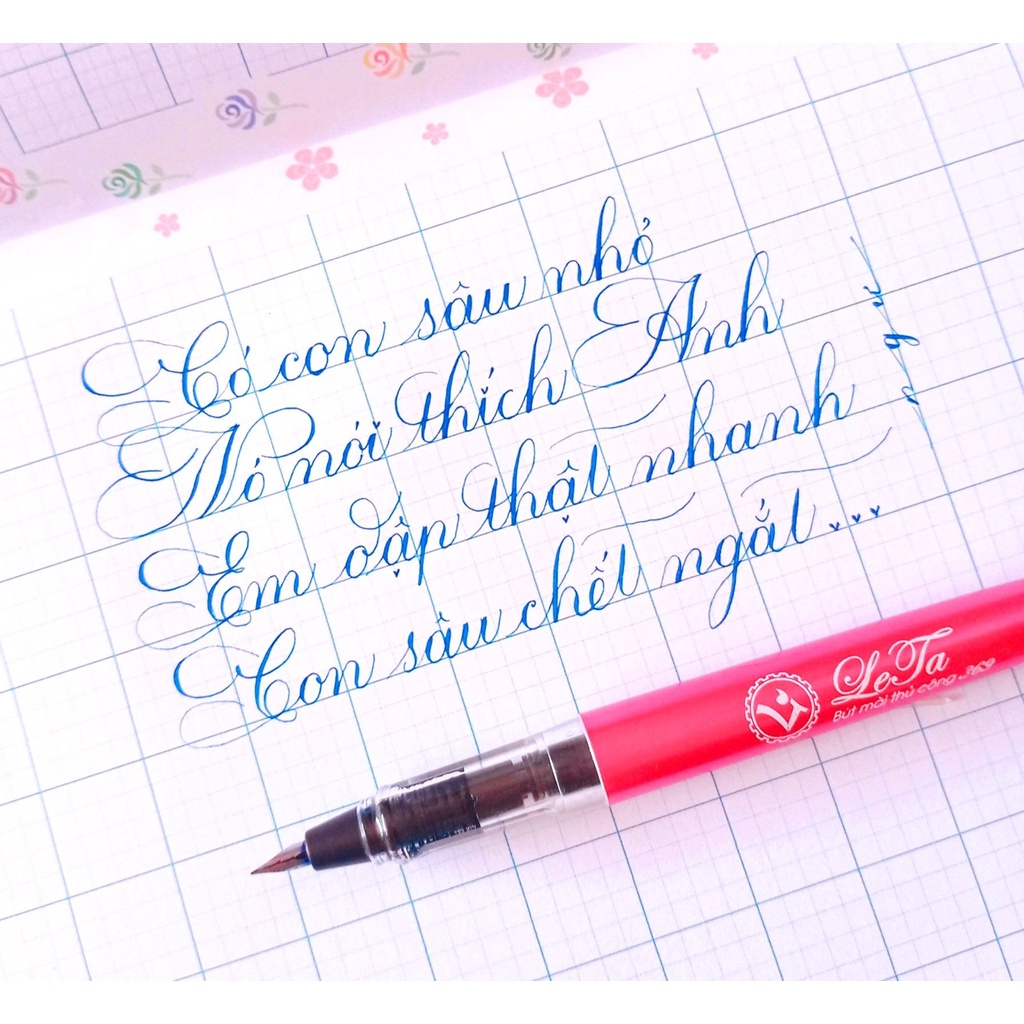 Có con sâu nhỏ
Nó nói thích Anh
Em đập thật nhanh
Con sâu chết ngắt...
LeTa
Bút mài thủ công 369